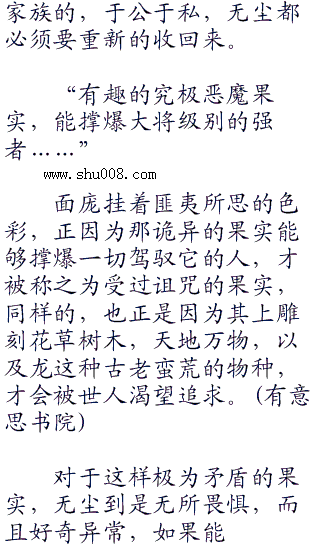 家族的，于公于私，无尘都
必须要重新的收回来。
“有趣的究极恶魔果
实，能撑爆大将级别的强
者……”
www.shu008.com
面庞挂着匪夷所思的色
彩，正因为那诡异的果实能
够撑爆一切驾驭它的人，才
被称之为受过诅咒的果实，
同样的，也正是因为其上雕
刻花草树木，天地万物，以
及龙这种古老蛮荒的物种，
才会被世人渴望追求。（有意
思书院）
对于这样极为矛盾的果
实，无尘到是无所畏惧，而
且好奇异常，如果能